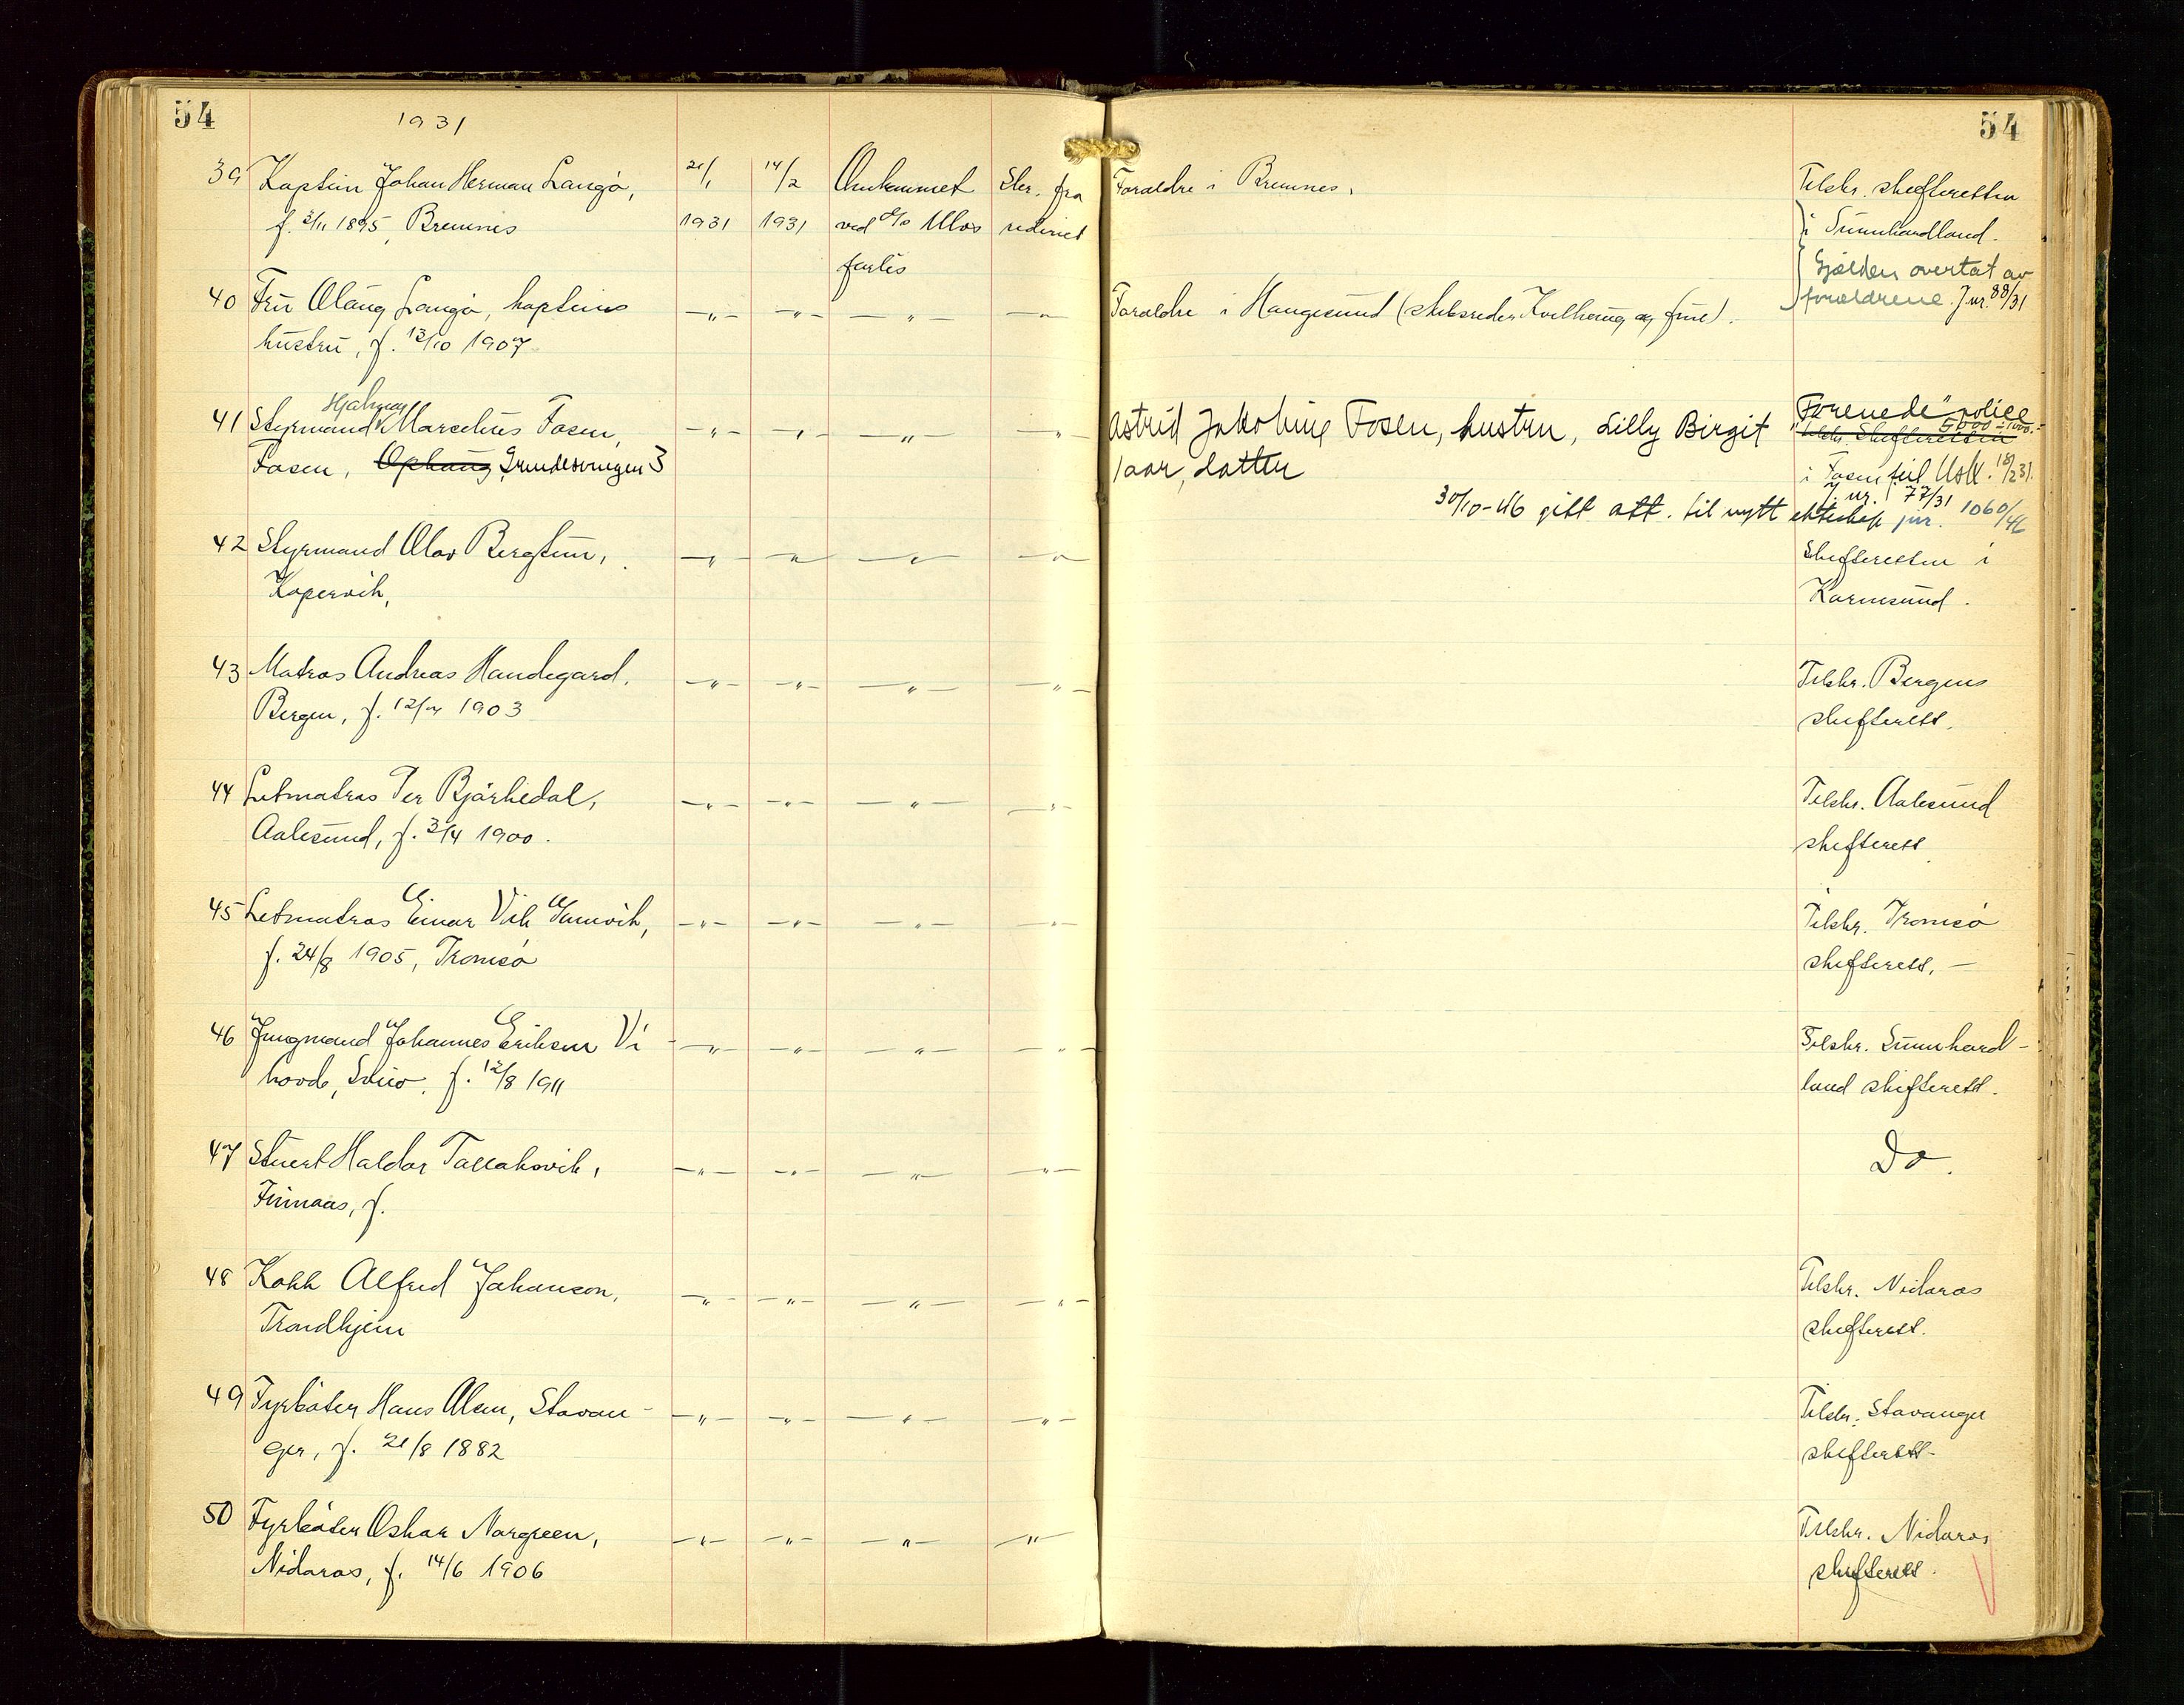 54
1931
54
39 Kaptein Johan Herman Langø, 21/1 14/2 Omkommet Skr. fra Forældre i Bremnes. Tilskr. skifteretten
f. 3/11 1895, Bremnes 1931 1931 ved d/s Ulvs rederiet i Sunnhordland.
forlis Gjælden overtat av
forældrene. J.nr. 88/31
40 Fru Olaug Langø, kapteins -"- -"- -"- -"- Forældre i Haugesund (skibsreder Kvilhaug og frue).
hustru, f. 13/10 1907
Hjalmar
41 Styrmand Marselius Fosen, -"- -"- -"- -"- Astrid Jakobine Fosen, hustru, Lilly Birgit "Forenede" police
5000 ÷ 1000.-
Tilskr. Skifteretten
Fosen, Ophaug Grundesvingen 3 1 aar, datter i Fosen 18/2 31.
J. nr. 77/31
30/10-46 gitt att. til nytt ekteskap jnr. 1060/46
42 Styrmand Olav Bergtun, -"- -"- -"- -"- Skifteretten i
Kopervik, Karmsund.
43 Matros Andreas Handegard, -"- -"- -"- -"- Tilskr. Bergens
Bergen, f. 1903 skifterett.
44 Letmatros Per Bjørkedal, -"- -"- -"- -"- Tilskr. Aalesund
Aalesund, f. 3/4 1900. skifterett
45 Letmatros Einar Vik -"- -"- -"- -"- Tilskr. Tromsø
f. 24/8 1905, Tromsø skifterett. -
46 Jungmand Johannes Eriksen Vi -"- -"- -"- -"- Tilskr. Sunnhord-
hovde, f. 12/8 1911 land skifterett.
47 Stuert Haldor Tallaksvik, -"- -"- -"- -"- Do.
Finnaas, f.
48 Kokk Alfred Johanson, -"- -"- -"- -"- Tilskr. Nidaros
Trondhjem skifterett.
49 Fyrbøter Hans Olsen, Stavan- -"- -"- -"- -"- Tilskr. Stavanger
ger, f. 21/8 1882 skifterett-
50 Fyrbøter Oskar Norgreen, -"- -"- -"- -"- Tilskr. Nidaros
Nidaros, f. 14/6 1906 skifterett.